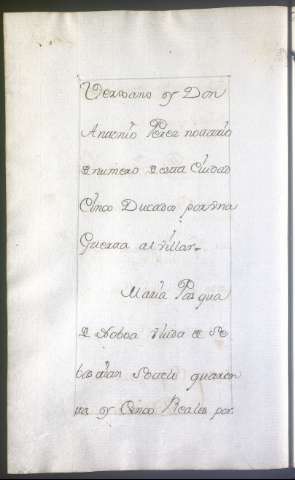 Verdano y Don
Antonio Perez notario
de numero de esta Ciudad
Cinco Ducados por vna
Guerta al villar.
Maria Pasqua
de Noboa viuda de Se
bastian Sotelo quaren
ta y Cinco Reales por